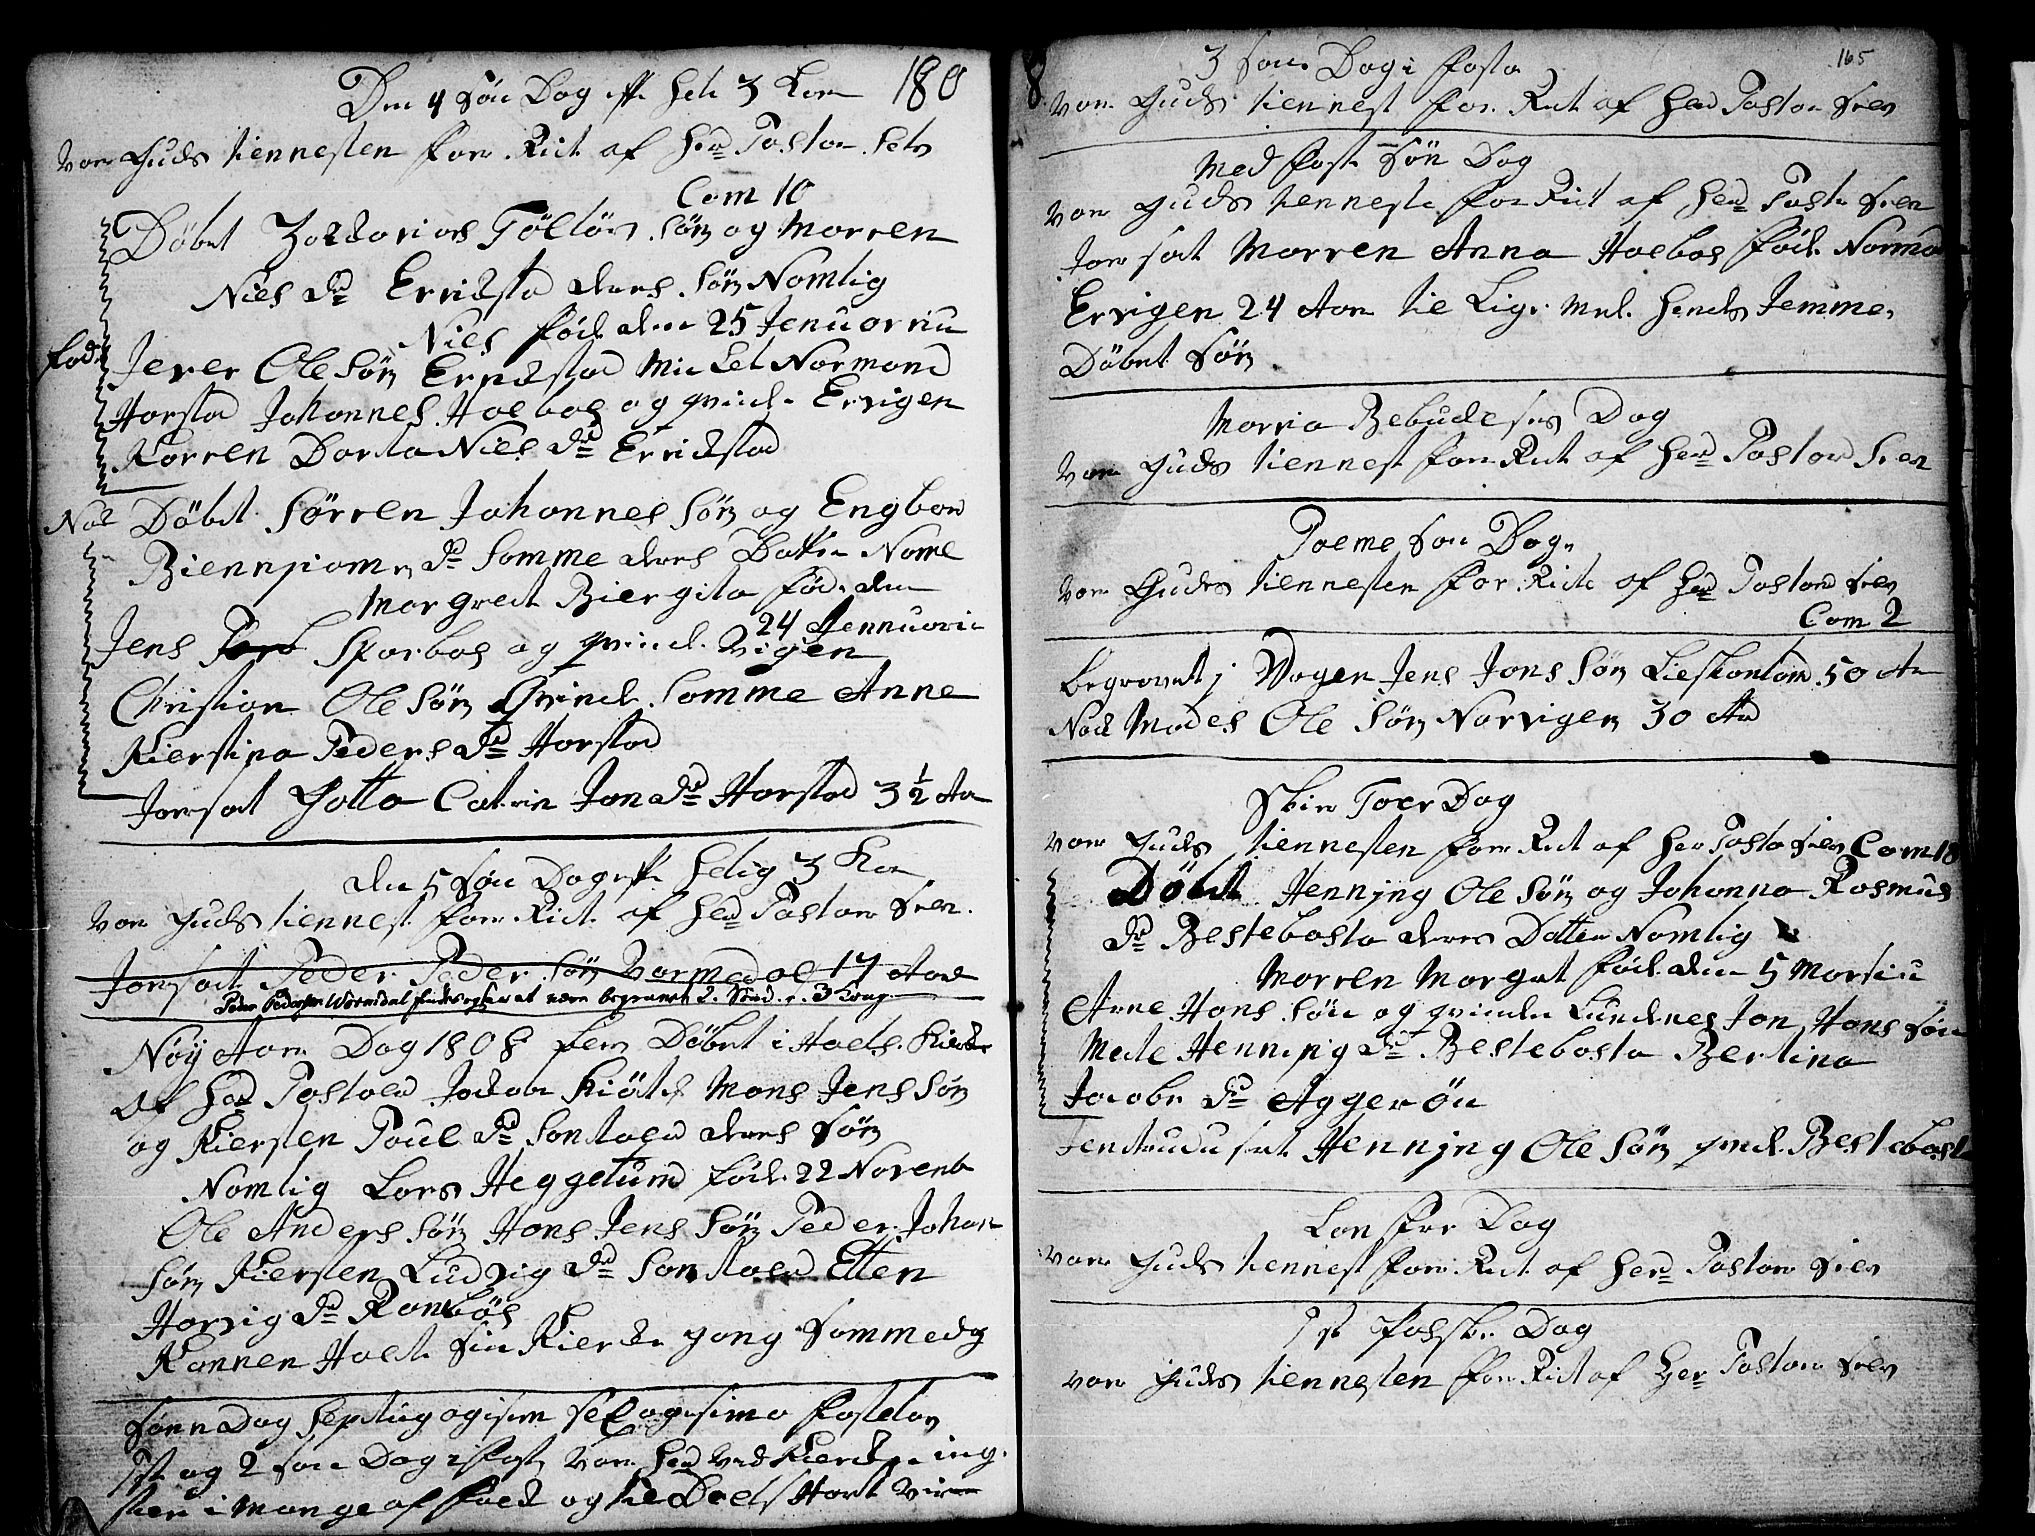 Den 4 Søn Dag eft Heli 3 Kon 180
var Guds tiennesten for Rict af Her Pastor Selv
Com 10
Døbt Zakkarias Söllör Sön og Marren
Niels Dr Errikstad deres Sön Nomlig
Niels föd den 25 Jenuarriu
fod
Jever Ole Sön Errikstad Mickel Normand
Harstad Johannes Holbos og qvinde Ervigen
Karren Dorta Niels Dr Errikstad
Nok Döbt Sörren Johannes Sön og Engbor
Biennjam Dr Somme deres Datter Noml
Margret Biergita föd den
24 Jennuari
Jens Sparbos og qvind Vigen
Christian Ole Sön Qvind Somme Anne
Kierstina Peders Dr Harstad
Jorsat Gotto Catrin Jon Dr Harstad 3 1/2 Aar
den 5 Søn Dag eft Helig 3 Kon
var Guds tiennest for Rict af Her Pastor Selv
Jorsat Peder Peder Sön Vormedal 17 Aar
Peder Pedersen Wormdal findes være begravet 2. Sønd. e. 3 Kong
Nöÿ Aars Dag 1808 Döbt i Holts Kirke
af Her Pastor Jackob Kiöts Mons Jens Sön
og Kiersten Poul Dr Sontad deres Sön
Nomlig Lars Heggelund föd 22 Novemb
Ole Anders Sön Hons Jens Sön Peder Johan
Sön Kiersten Ludvig Dr Sontad Ellen
Harvig Dr Ronbös
Konnen Holt sin Kierke gong sammedag
Sønn Dag Septugagisim Sexagisima Fastelav
1st og 2 Søn Dag i Fast var Her ved Kierken ing
sten i Mange af Folk og
165
3 Søn Dag i Fasta
var Guds tiennest for Rict af Her Pastor Selv
Med fast Sön Dag
var Guds tienneste for Rict af Her Pastor Selv
Jorsat Marren Anna Holbos föd Norma
Ervigen 24 Aar lie Lige med hendes Jemme
Döbt Sön
Marria Bebudelses Dag
var Guds tiennest for Rict af Her Pastor Selv
Palme Søn Dag
var Guds tiennesten for Rict af Her Pastor Selv
Com 2
begravet i Vogen Jens Jons Sön Lieskontad 50 Aar
Nok Mades Ole Sön Norvigen 30 Aar
Skier Toer Dag
var Guds tiennesten for Rict af Her Pastor Selv Com 18
Döbt Henning Ole Sön og Johanna Rasmus
Dr Bestebosta deres Datter Nomlig
Marren Margret föd den 5 Martiu
Arne Hans Sön og qvinde Lundnes Jon Hans Sön
Mele Henning Dr Bestebosta Bertina
Jacobe Dr Aggeröu
Jentroduserat Henning Ole Sön qvind Bestebosta
Lan fre Dag
var Guds tiennest for Rict af Her Pastor Selv
1st Paaske Dag
var Guds tiennesten for Rict af Her Pastor Selv